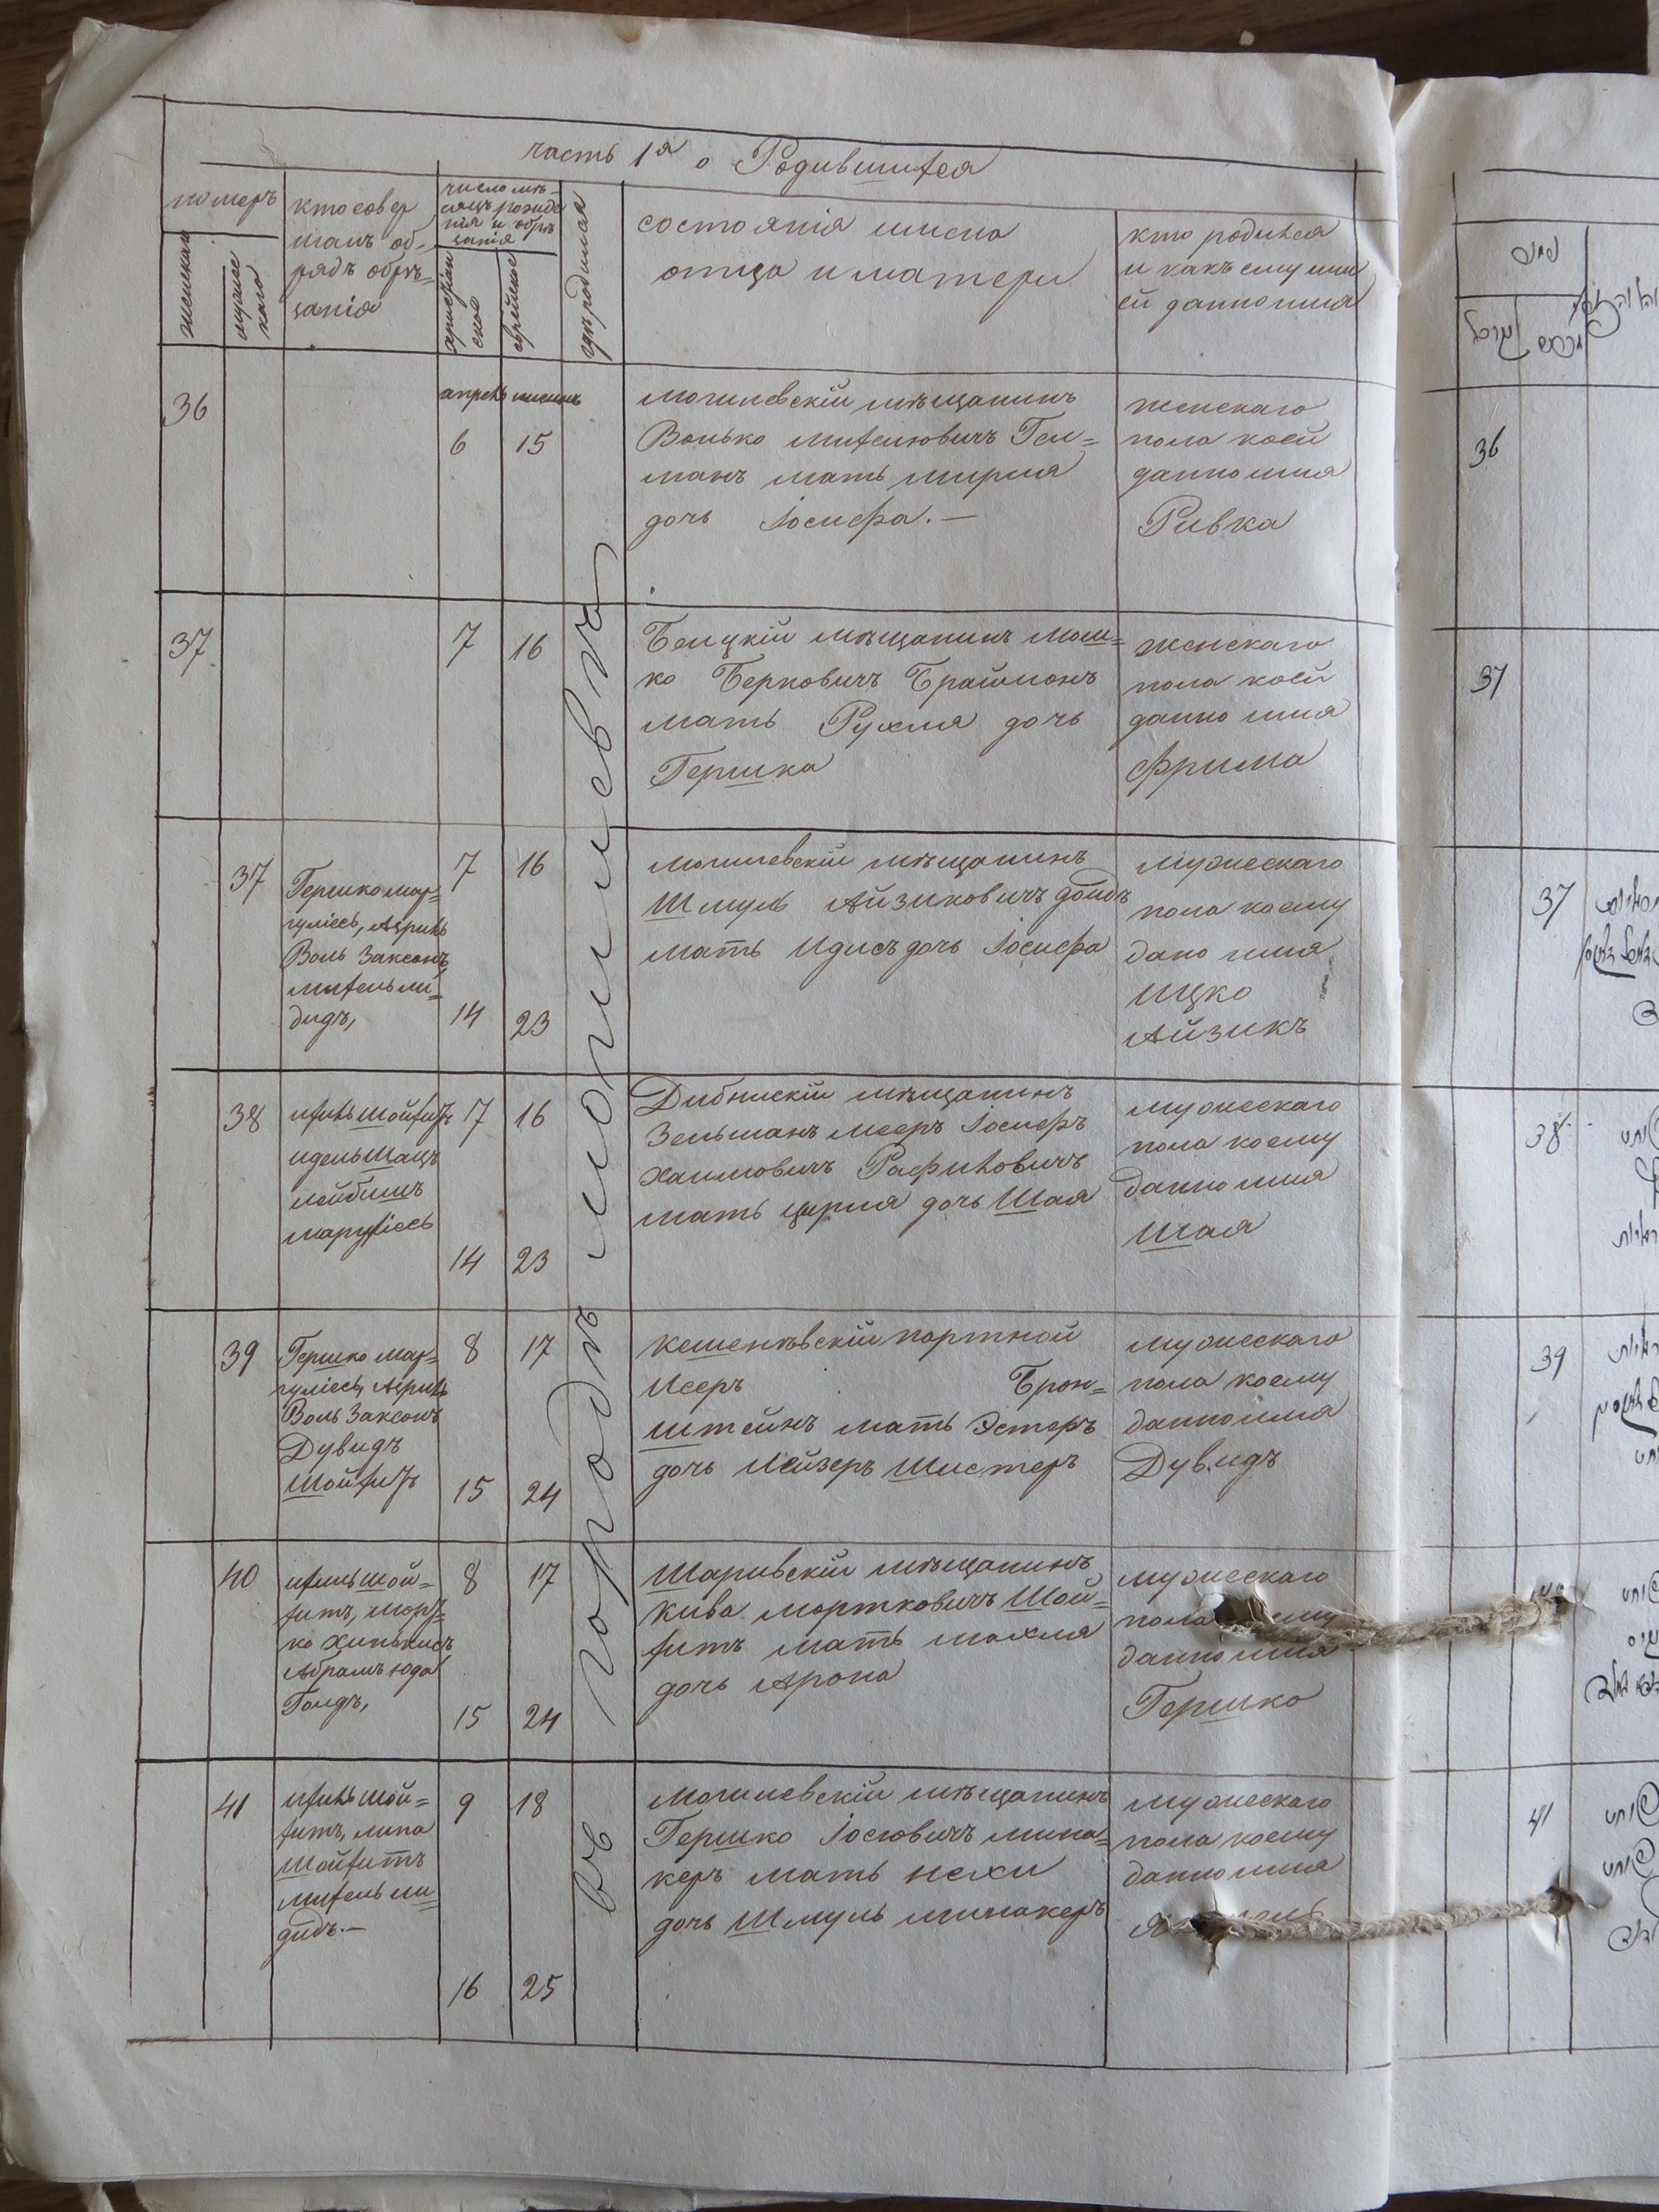 часть 1я о Родившихся
номеръ
женскаго
мужес
каго
кто совер
шалъ об-
рядъ обрѣ-
занія
число мѣ-
сяцъ рожде
нія и обрѣ
занія
христіан
ское
еврейское
гдѣ родился
состоянія имена
отца и матери
кто родился
и какъ ему или
ей данно имя
въ городѣ могилевѣ
36
апрель нисинъ
6 15
могилевскій мѣщанинъ
Волько Михелювичъ Гел=
манъ мать мирля
дочь Іосифа. —
женскаго
пола коей
данно имя
Ривка
37
7 16
Бельцкій мѣщанинъ Мош=
ко Берковичъ Брайманъ
мать Рухля дочь
Гершка
женскаго
пола коей
данно имя
Фрима
37
Гершко мар=
гуліесъ, Авриль
Воль Заксонъ
михель ли=
дидъ,
7 16
14 23
могилевскій мѣщанинъ
Шмуль Айзиковичъ
мать Идисъ дочь Іосифа
мужескаго
пола коему
дано имя
Ицко
Айзикъ
38
ихиль Шойхитъ
идель Шацъ
лейбишъ
маргуліесъ
7 16
14 23
мѣщанинъ
Зельманъ Мееръ Іосифъ
Хаимовичъ Рафиловичъ
мать церля дочь Шая
мужескаго
пола коему
данно имя
Шая
39
Гершко мар=
гуліесъ, Авриль
Воль Заксонъ
Дувидъ
Шойхитъ
8 17
15 24
кешенѣвскій портной
Исеръ Брон=
штейнъ мать Эстеръ
дочь Лейзеръ Шистеръ
мужескаго
пола коему
данно имя
Дувидъ
40
ихиль Шой=
хитъ, морт=
ко
Абрамъ юда
Голдъ,
8 17
15 24
Шаривскій мѣщанинъ
Кива мортковичъ Шой=
хитъ мать махля
дочь Арона
мужескаго
пола
данно имя
Гершко
41
ихиль Шой=
хитъ, липа
Шойхитъ
михель ли
дидъ. —
9 18
16 25
Могилевскій мѣщанинъ
Гершко Іосіовичъ мина=
керъ мать нехи
дочь Шмуль минакеръ
мужескаго
пола коему
данно имя
36
37
37
38
39
41